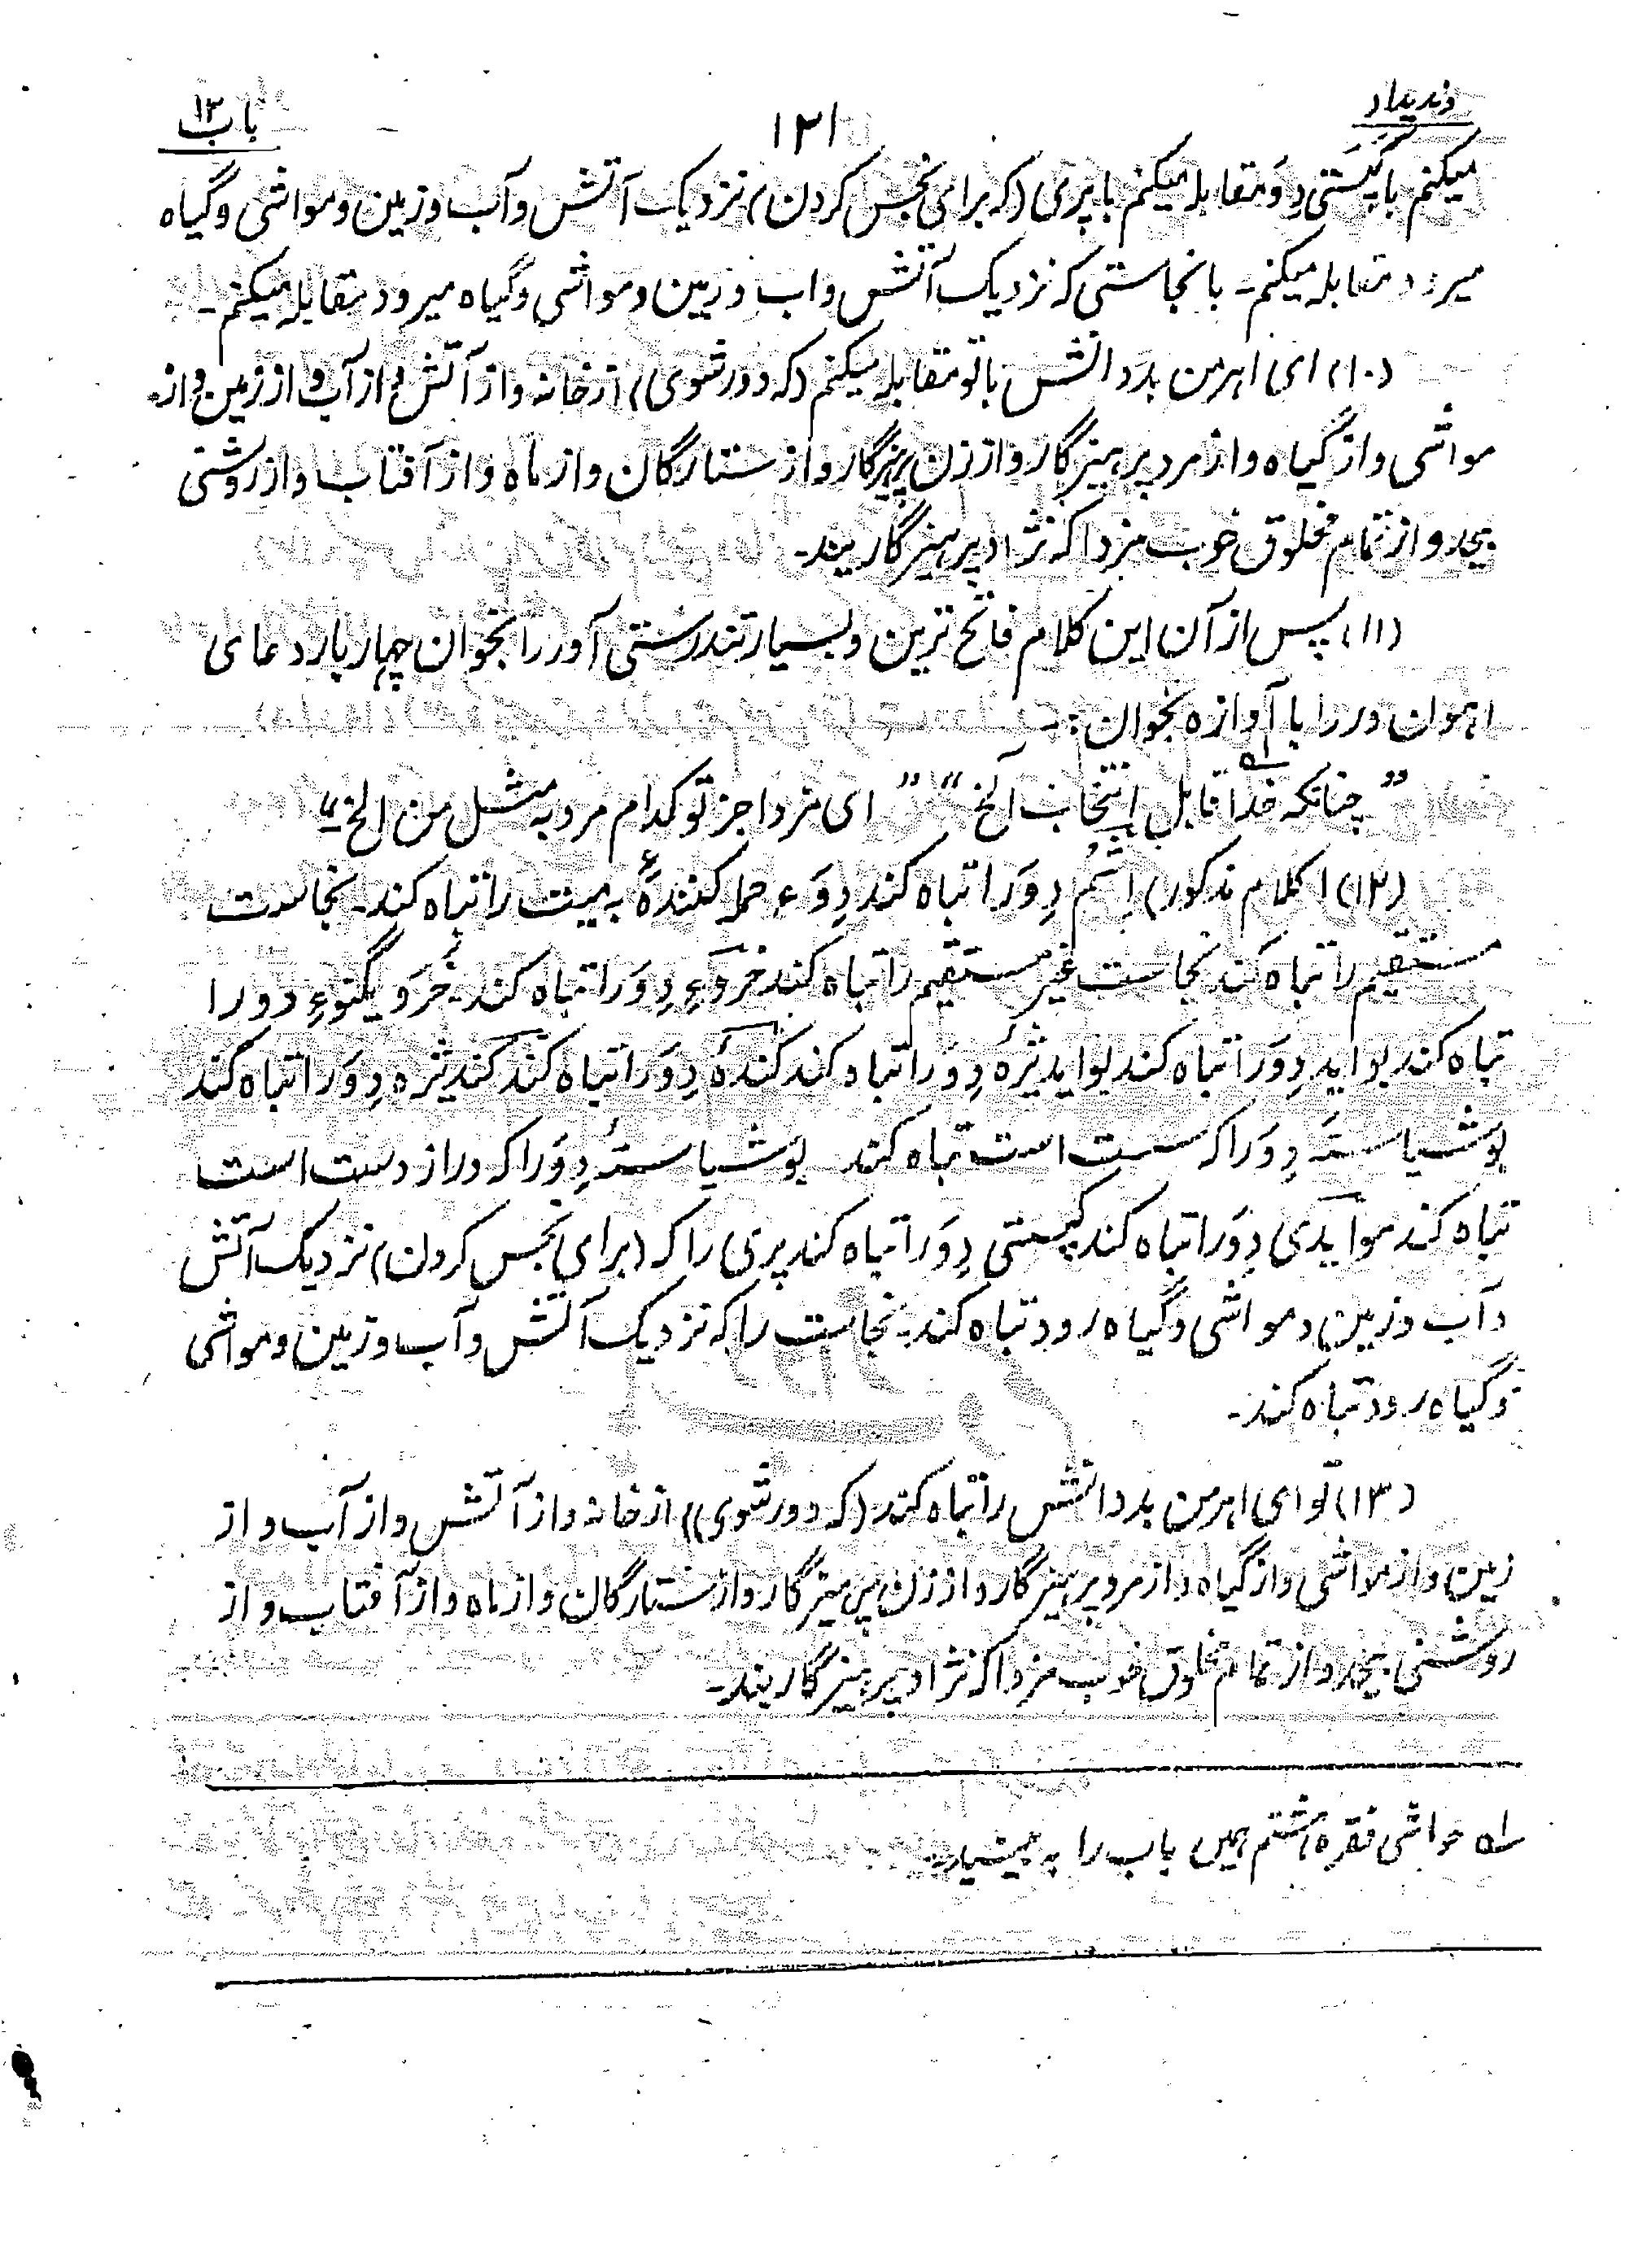 وندیداد
۱۲۱
باب ۱۳
میکنم با کپستی دِوَ مقابله میکنم با پری (که برای نجس کردن) نزدیک آتش و آب و زمین و مواشی و گیاه
میرود مقابله میکنم۔ با نجاستی که نزدیک آتش و اب و زمین و مواشی و گیاه میرود مقابله میکنم۔
(۱۰) ای اهرمن بدد انش با تو مقابله میکنم (که دور شوی) از خانه و از آتش و از آب و از زمین و از
مواشی و از گیاه و از مرد پرهیزگار و از زن پرهیزگار و از ستارگان و از ماه و از آفتاب و از روشنی
بیحد و از تمام مخلوق خوب مزدا که نژاد پرهیزگاریند۔
(۱۱) پس از آن این کلام فاتح ترین و بسیار تندرستی آور را بخوان چهار بار دعای
اهون ور را با آوازه بخوان:۔
”چنانکه خدا قابل انتخاب الخ“ ”ای مزدا جز تو کدام مرد به مثل من الخ“
(۱۲) (کلام مذکور) اِشم دِوَ را تباه کند دِوَ حمله کنندهٔ به میت را تباه کند۔ نجاست
مستقیم را تباه کند نجاست غیر مستقیم را تباه کند خروءِ دِوَ را تباه کند۔ خُرَو یگنوءِ دو را
تباه کند بواید دِوَ را تباه کند بواید ثیزه دِوَ را تباه کند کنده دِوَ را تباه کند کندیثزه دِوَ را تباه کند
بوشیاستهَ دِوَ را که سست است تباه کند بوشیاستهٔ دِوَ را که دراز دست است
تباه کند موایدی دِوَ را تباه کند کپستی دِوَ را تباه کند پری را که (برای نجس کردن) نزدیک آتش
و آب و زمین و مواشی و گیاه رود تباه کند۔ نجاست را که نزدیک آتش و آب و زمین و مواشی
و گیاه رود تباه کند۔
(۱۳) تو ای اهرمن بد دانش را تباه کند (که دور شوی) از خانه و از آتش و از آب و از
زمین و از مواشی و از گیاه و از مرد پرهیزگار و از زن پرهیزگار و از ستارگان و از ماه و از آفتاب و از
روشنی بیحد و از تمام مخلوق خوب مزدا که نژاد پرهیزگاریند۔
سله حواشی فقره هشتم همین باب را به بینید۔